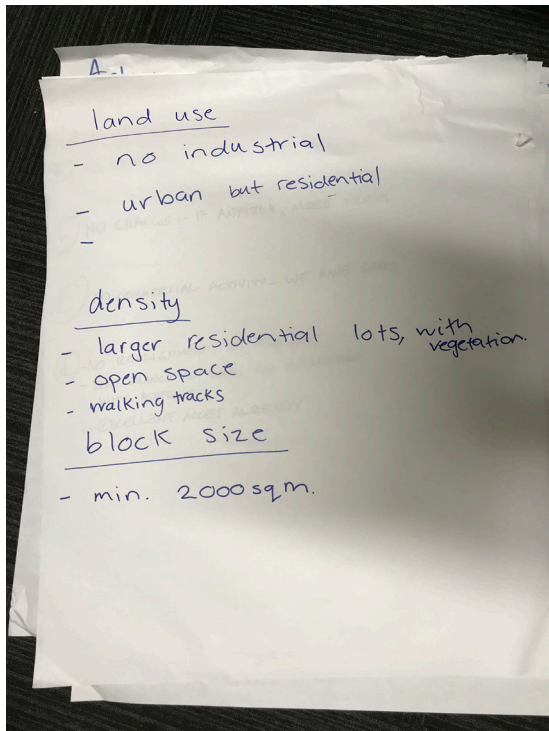 land use
- no industrial
- urban but residential
-
density
- larger residential lots, with vegetation.
- open space
- walking tracks
block size
- min. 2000 sqm.